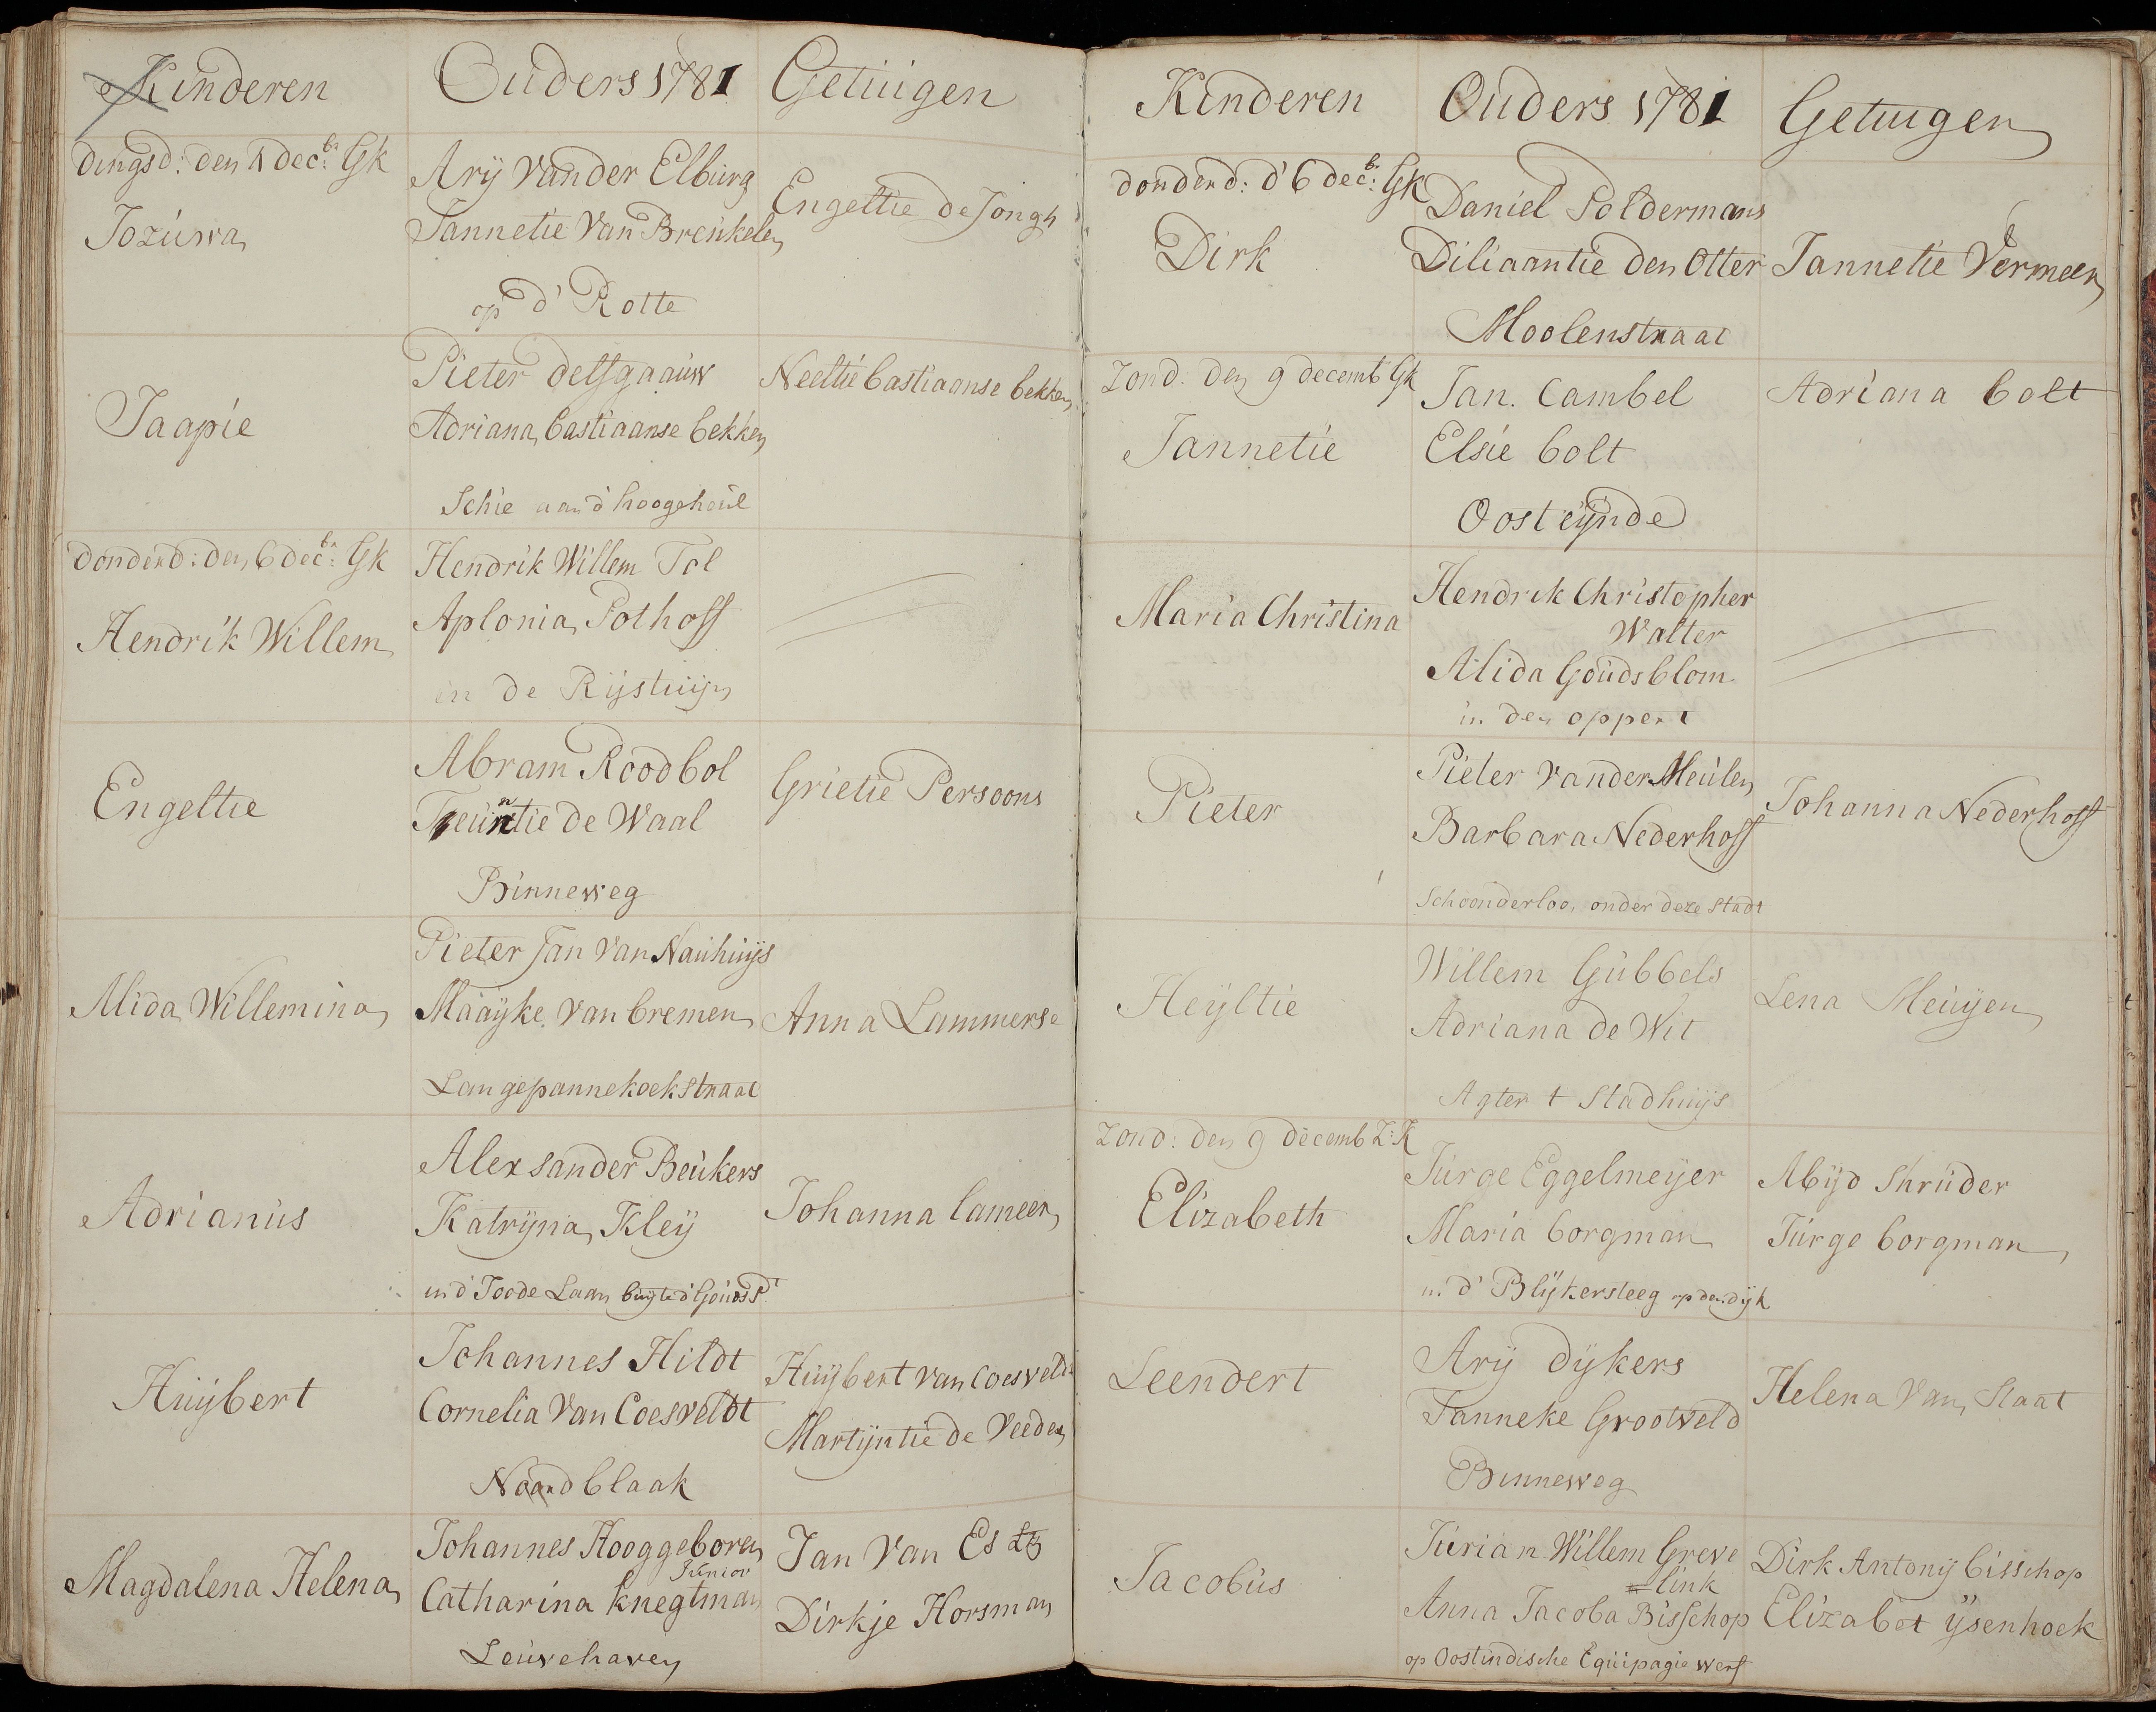 Kinderen
Ouders 1781
Getuigen
dingsd: den 4 decbr: Gk
Jozuwa
Ary Vander Elburg
Jannetie Van Breukelen
op d' Rotte
Engeltie de Jongh
Jaapie
Pieter delfgaauw
Adriana bastiaanse bekken
Schie aan d' hoogeheul
Neeltie bastiaanse bekken
donderd: den 6 decbr: Gk
Hendrik Willem
Hendrik Willem Tol
Aplonia Pothoff
in de Rijstuijn
Engeltie
Abram Roodbol
Teuntie de Waal
Binneweg
Grietie Persoons
Alida Willemina
Pieter Jan Van Nauhuijs
Maayke Van bremen
Langepannekoekstraat
Anna Lammerse
Adrianus
Alexsander Beukers
Katryna Kleij
in d' Joode Laan buyte d' Gouds P
Johanna lameer
Huijbert
Johannes Hildt
Cornelia Van Coesveldt
Noordblaak
Huijbert van Coesveldt
Martijntie de Veeder
Magdalena Helena
Johannes Hooggeboren
Junior
Catharina knegtman
Leuvehaven
Jan Van Es
Dirkje Horsman
Kinderen
Ouders 1781
Getuigen
donderd: d' 6 decbr: Gk
Dirk
Daniel Poldermans
Diliaantie den Otter
Moolenstraat
Jannetie Vermeer
Zond. den 9 decemb Gk
Jannetie
Jan. Cambel
Elsie bolt
Oosteijnde
Adriana bolt
Maria Christina
Hendrik Christopher
Walter
Alida Goudsblom
in den oppert
Pieter
Pieter Vander Meulen
Barbara Nederhoff
Schoonderloo, onder deze Stadt
Johanna Nederhoff
Heyltie
Willem Gubbels
Adriana de Wit
Agter t Stadhuijs
Lena Meuyen
Zond: den 9 decemb Z: K
Elizabeth
Jurge Eggelmeyer
Maria borgman
in d' Blykersteeg op den dijk
Abijd Shruder
Jurge borgman
Leendert
Ary dykers
Janneke Grootveld
Binneweg
Helena Van Staat
Jacobus
Jurian Willem Greve
=link
Anna Jacoba Bisschop
op Oostindische Equipagie werf
Dirk Antony bisschop
Elizabet ijsenhoek